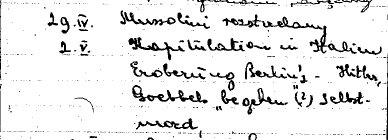 29.IV. Mussolini rozstrelany
2.V. Kapitulation in Italien
Eroberung Berlin's - Hitler,
Goebbels "begehen" (?) Selbst-
mord,